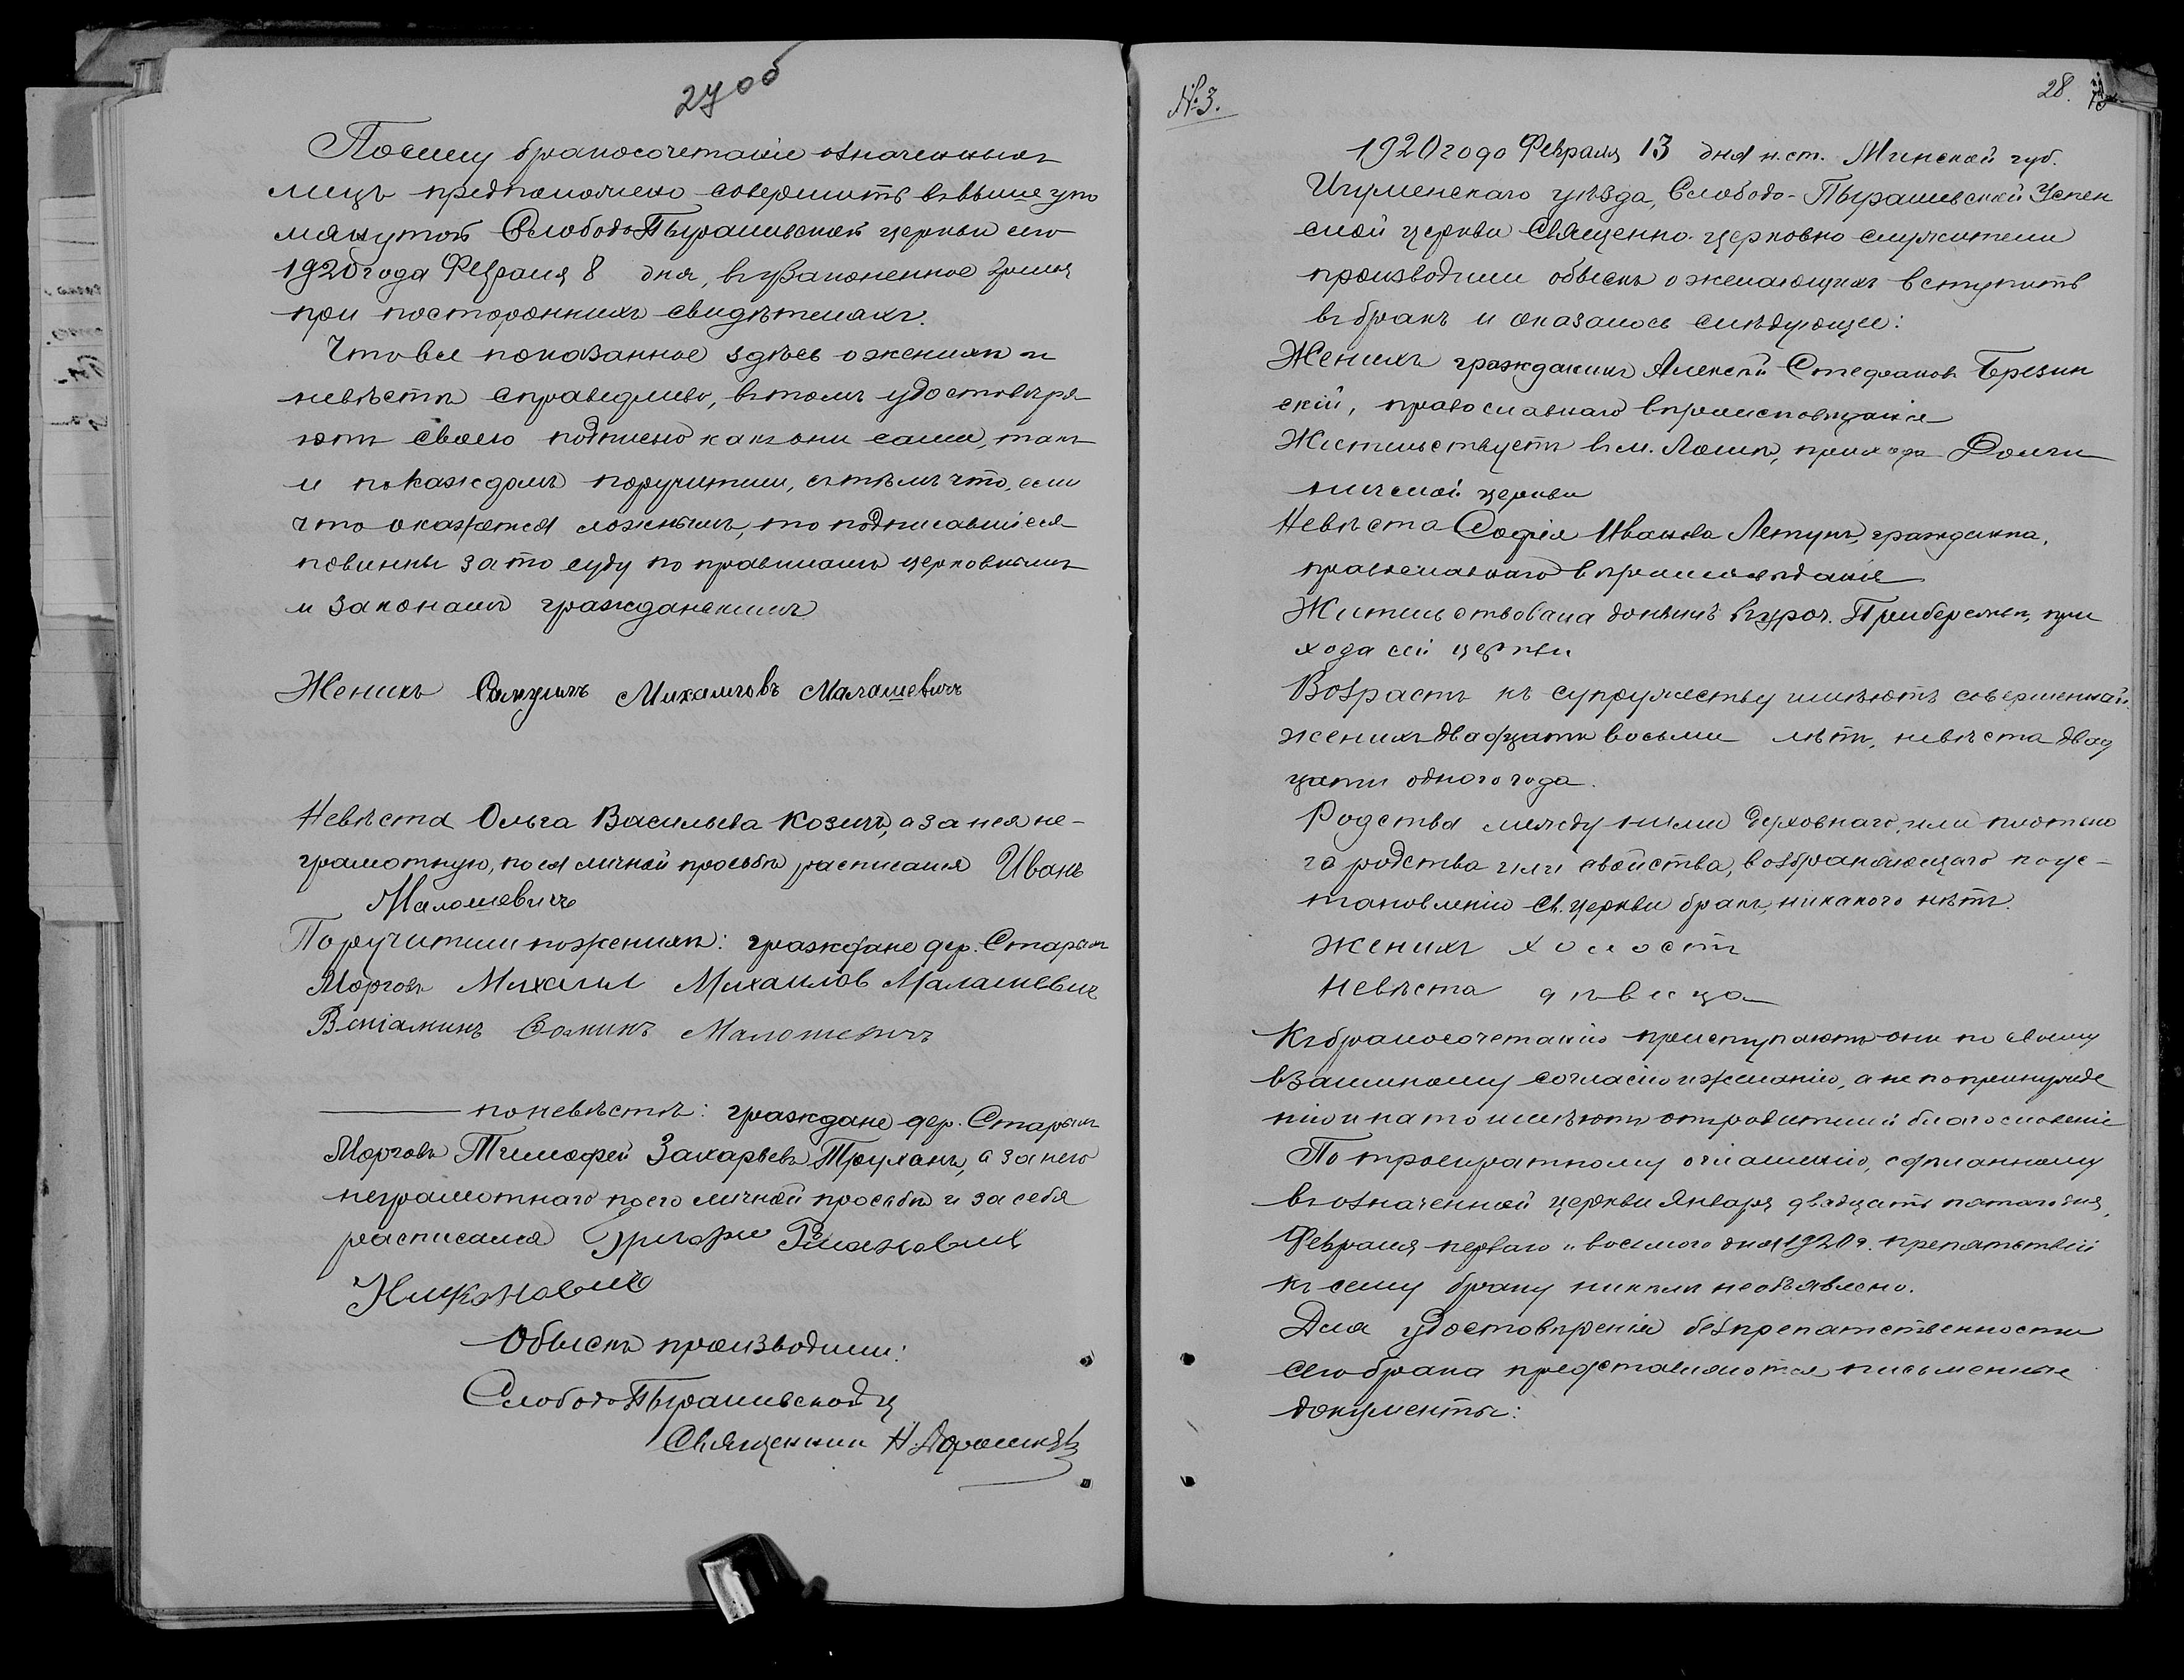 27 об
Посему бракосочетаніе означенныхъ
лицъ предположено совершить въ выше упо
мянутой Слободо Пырашевской церкви сего
1920 года Февраля 8 дня, въ узаконенное время
при постороннихъ свидѣтеляхъ.
Что все показанное здѣсь о женихѣ и
невѣстѣ справедливо, въ томъ удостовѣря
ютъ своею подписью какъ они сами, такъ
и по каждомъ поручители, съ тѣмъ что, если
что окажется ложнымъ, то подписавшіеся
повинны за то суду по правиламъ церковнымъ
и законамъ гражданскимъ
Женихъ Михаиловъ Малашевичъ
Невѣста Ольга Васильева Козичъ, а за нея не-
грамотную, по ея личной просьбѣ расписался Иванъ
Малашевичъ
Поручители по женихѣ: граждане дер. Старыхъ
Морговъ Михаил Михаилов Малашевич
Веніаминъ Ѳоминъ Малашевичъ
по невѣстѣ: граждане дер. Старыхъ
Морговъ Тимофей Захарьевъ Труханъ, а за него
неграмотнаго по его личной просьбѣ и за себя
расписался Григори
Обыскъ производили:
Слободо Пырашевской ц
Священник Н.
№ 3.
28.
1920 года Февраля 13 дня н. ст. Минской губ.
Игуменскаго уѣзда, Слободо-Пырашевской Успен
ской церкви Священно-церковно служители
производили обыскъ о желающихъ вступить
въ бракъ и оказалось слѣдующее:
Женихъ гражданинъ Алексѣй Стефановъ Брезин
скій, православнаго вѣроисповѣданія
Жительствуетъ въ м. приходѣ
церкви
Невѣста Софія Иванова Летунъ, гражданка,
православнаго вѣроисповѣданія
Жительствовала донынѣ въ уроч. при
хода сей церкви
Возрастъ къ супружеству имѣютъ совершенный:
женихъ двадцати восьми лѣтъ, невѣста двад
цати одного года.
Родства между ними духовнаго, или плотско
го родства или свойства, возбраняющаго по ус-
тановленію Св. церкви бракъ, никакого нѣтъ.
Женихъ холостъ
Невѣста дѣвица
Къ бракосочетанію приступаютъ они по своему
взаимному согласію и желанію, а не по принужде
нію и на то имѣютъ отъ родителей благословеніе
По троекратному оглашенію, сдѣланному
въ означенной церкви Января двадцать пятаго дня,
Февраля перваго и восьмого дня 1920 г. препятствій
къ сему браку никѣмъ не объявлено.
Для удостовѣренія безпрепятственности
сего брака представляются письменные
документы: